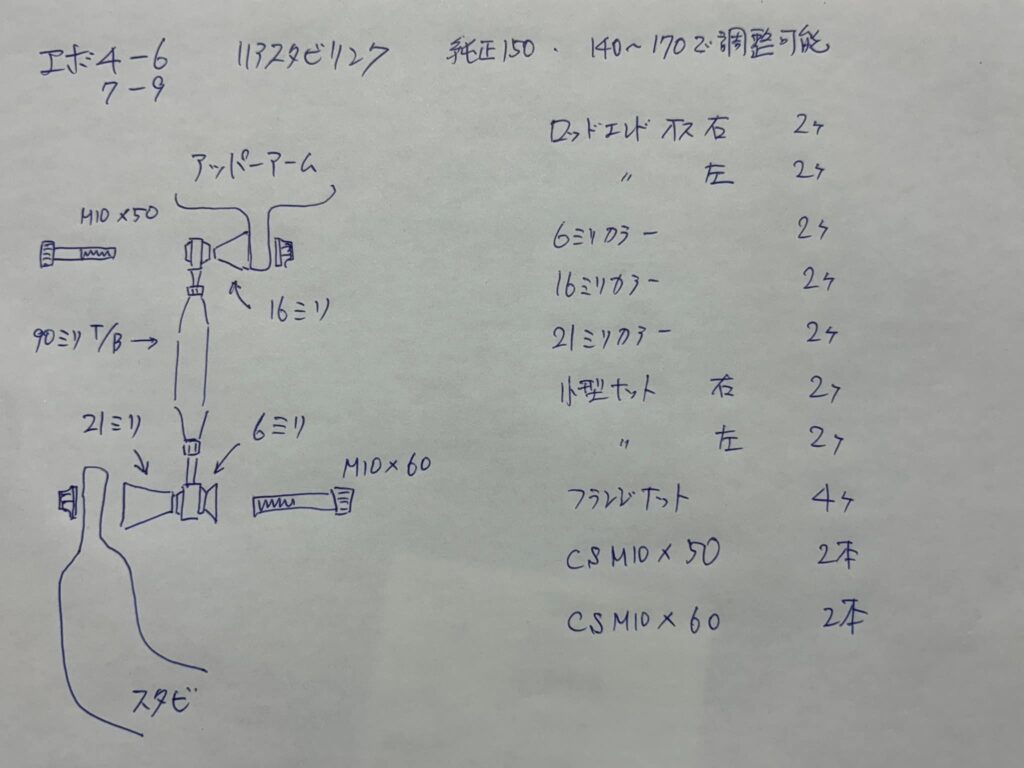 エボ4-6 リアスタビリンク 純正150. 140〜170で調整可能
7-9
アッパーアーム
M10×50
16ミリ
90ミリ T/B →
21ミリ
6ミリ
M10×60
スタビ
ロッドエンド オス 右 2ケ
〃 左 2ケ
6ミリカラー 2ケ
16ミリカラー 2ケ
21ミリカラー 2ケ
小型ナット 右 2ケ
〃 左 2ケ
フランジナット 4ケ
CS M10×50 2本
CS M10×60 2本